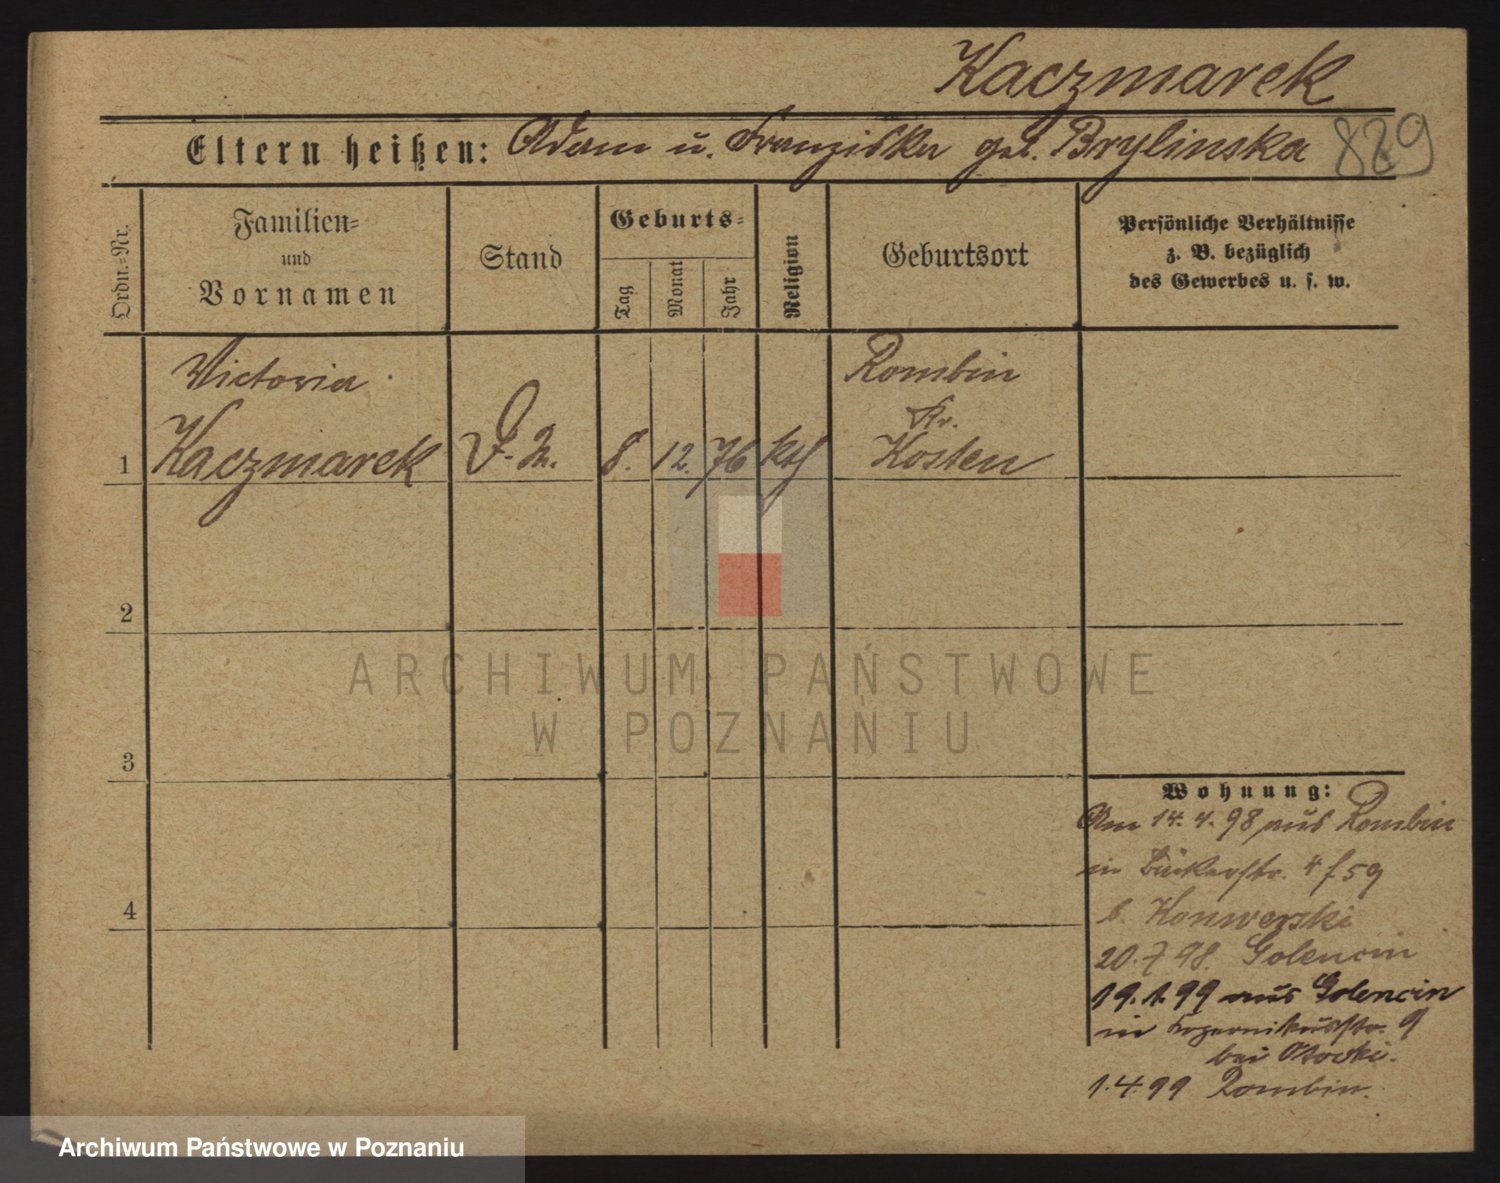 Kaczmarek
Eltern heißen: Adam u. Franziska geb. Brylinska 829
Ordn.-Nr.
Familien-
und
Vornamen
Stand
Geburts-
Tag
Monat
Jahr
Religion
Geburtsort
Persönliche Verhältnisse
z. B. bezüglich
des Gewerbes u. s. w.
Victoria
Rombin
Kr.
1 Kaczmarek 8. 12. 76 kth Kosten
2
3
4
Wohnung:
Am 14. 4. 98 aus Rombin
in Bäckerstr. 4 f 59
b. Konwerski
20. 7 98. Golencin
19. 1. 99 aus Golencin
in 9
bei Otocki.
1. 4. 99 Rombin.
ARCHIWUM PAŃSTWOWE
W POZNANIU
Archiwum Państwowe w Poznaniu